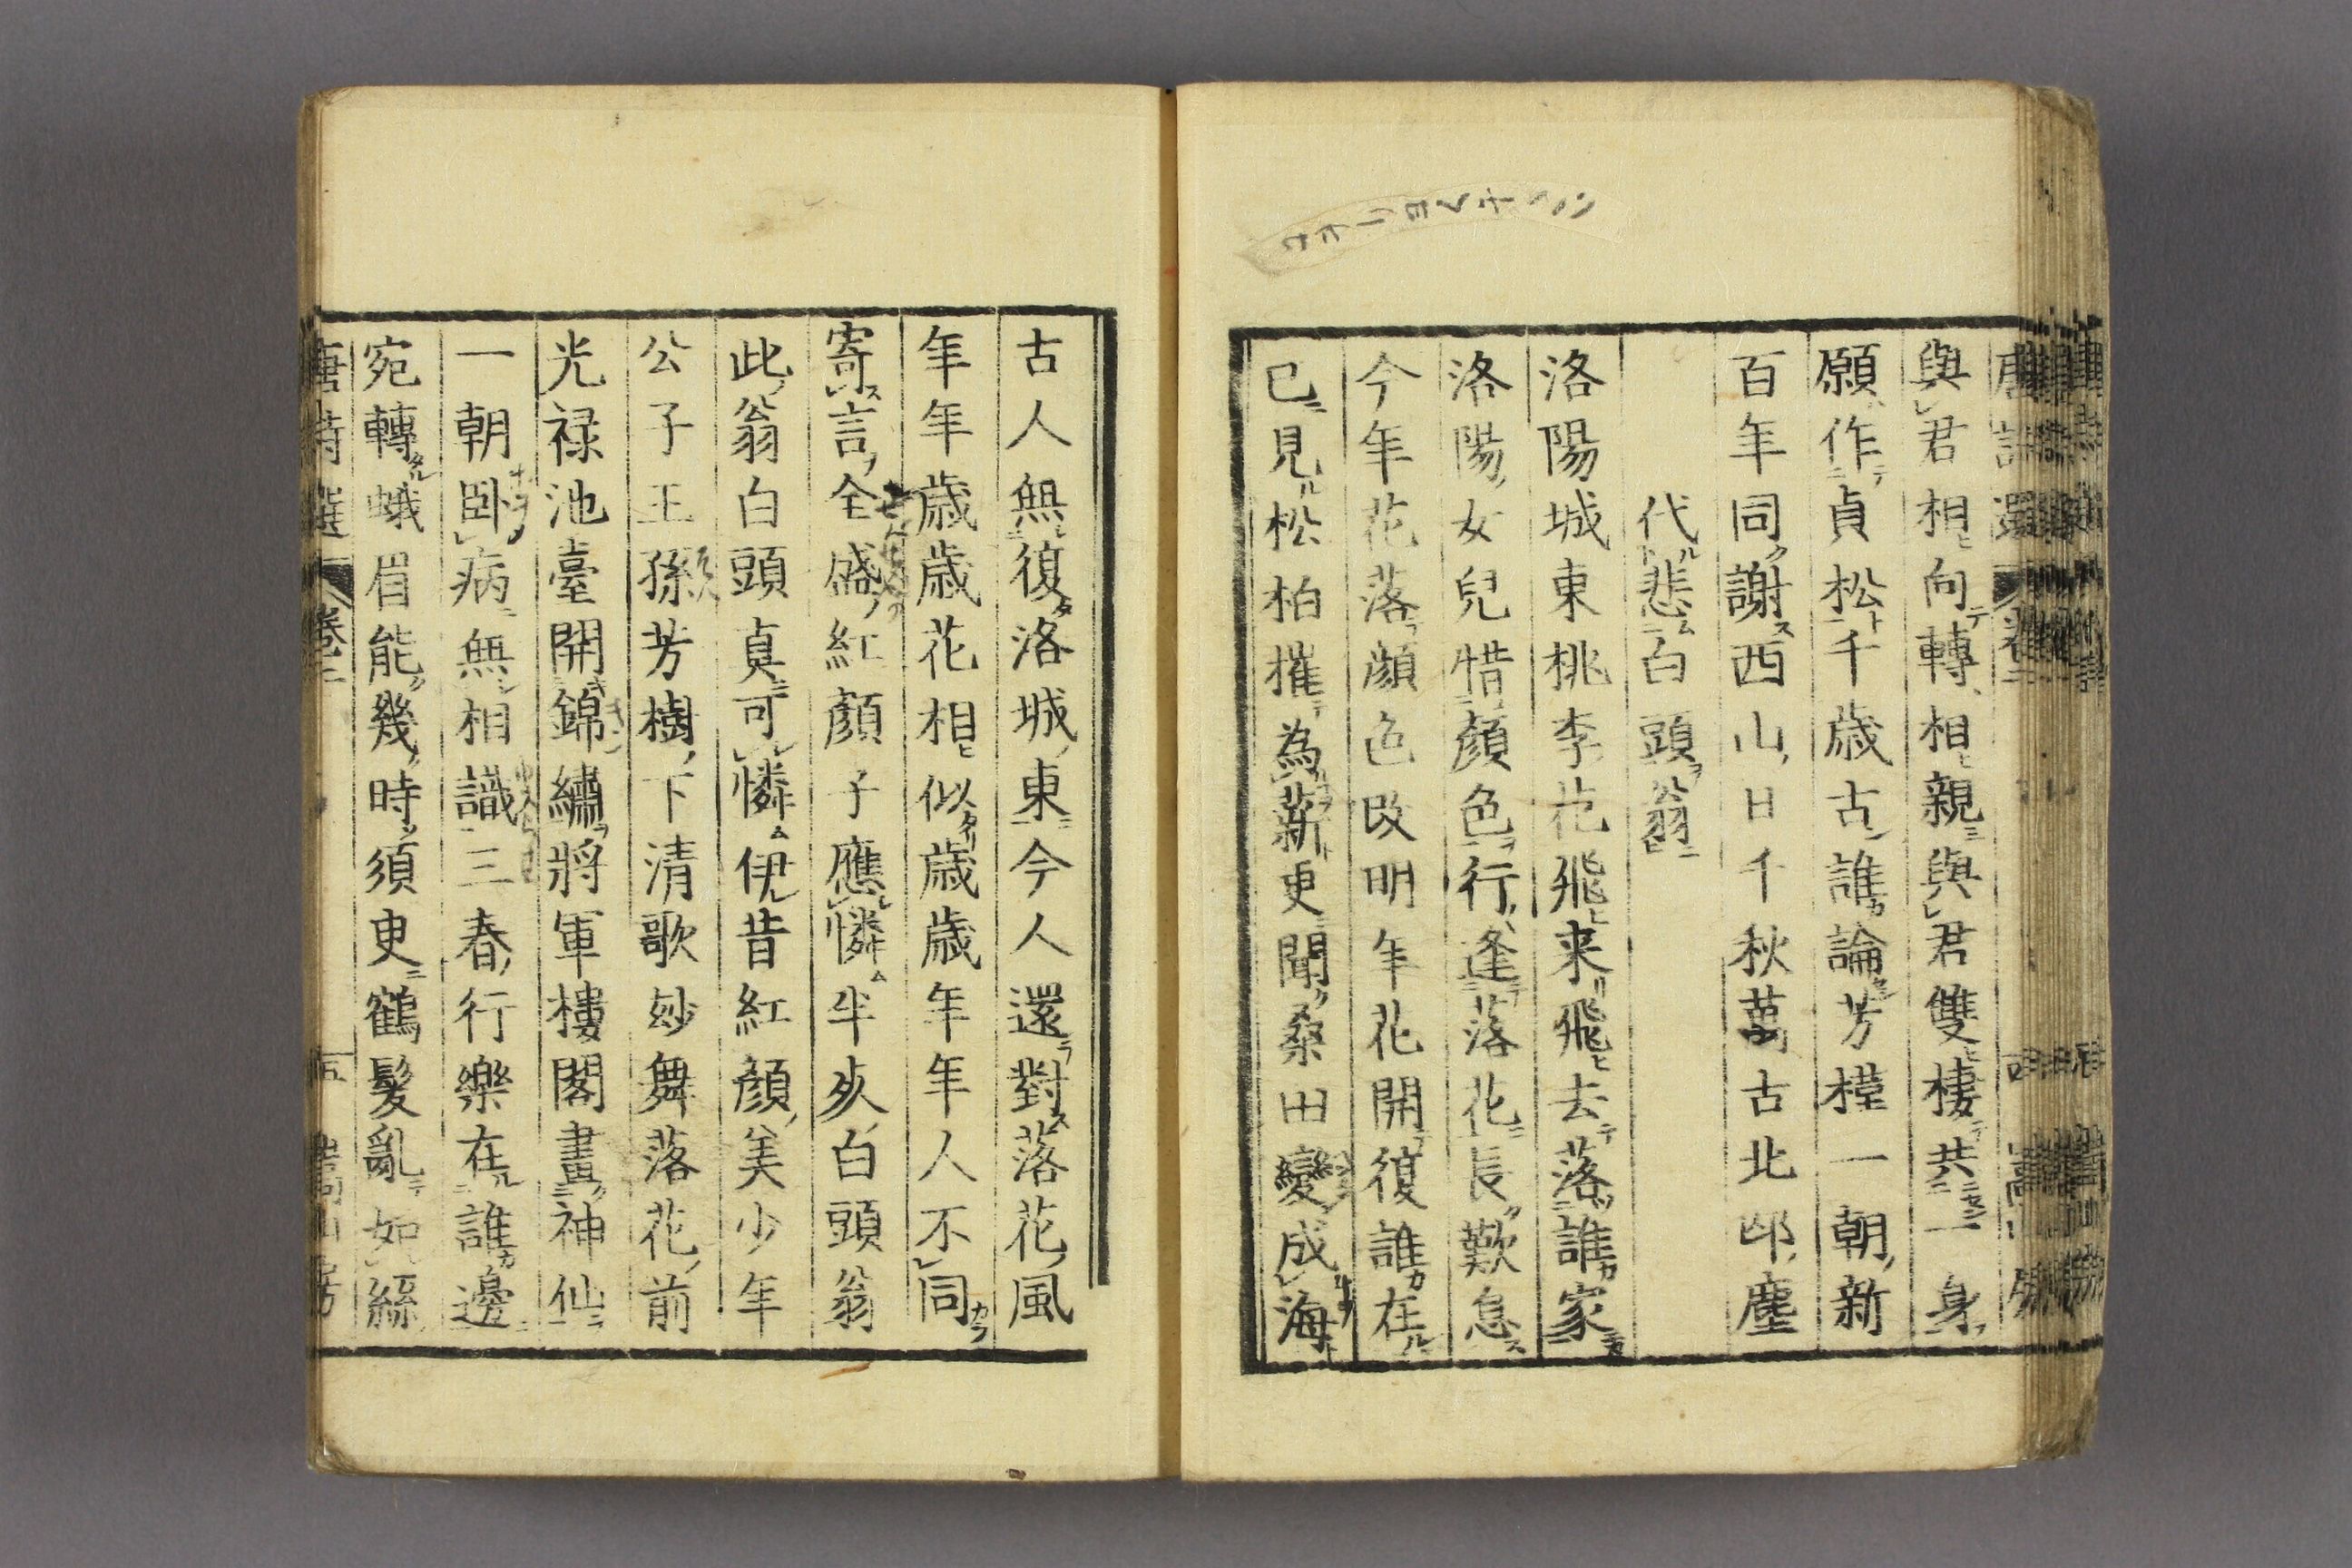 與君相向轉相親與君雙棲共一身
願作貞松千歳古誰論芳槿一朝新
百年同謝西山日千秋萬古北邙塵
代悲白頭翁
洛陽城東桃李花飛来飛去落誰家
洛陽女兒惜顔色行逢落花長歎息
今年花落顔色改明年花開復誰在
已見松柏摧為薪更聞桑田變成海
古人無復洛城東今人還對落花風
年年歳歳花相似歳歳年年人不同
寄言全盛紅顔子應憐半死白頭翁
此翁白頭真可憐伊昔紅顔美少年
公子王孫芳樹下清歌玅舞落花前
光禄池臺開錦繡將軍樓閣畫神仙
一朝臥病無相識三春行樂在誰邊
宛轉蛾眉能幾時須臾鶴髮亂如絲
唐詩選 卷二 五 嵩山房